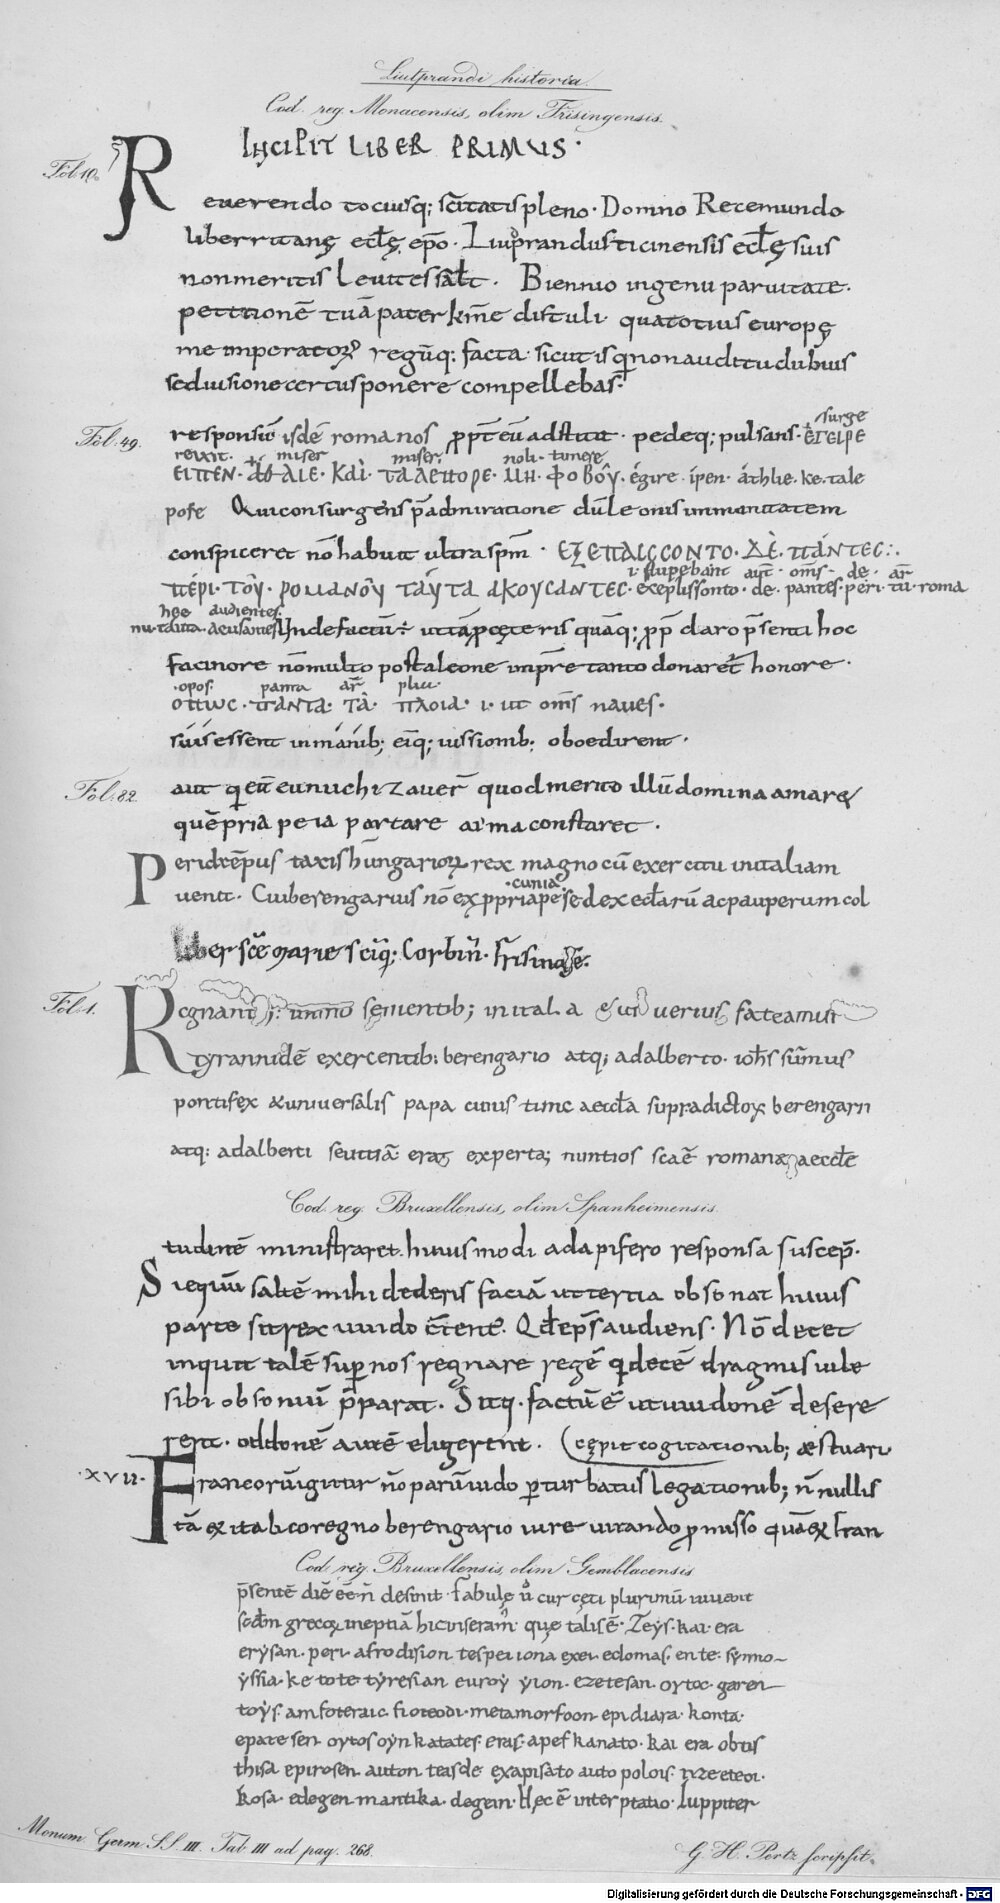 Liutprandi historia.
Cod. reg. Monacensis, olim Frisingensis.
INCIPIT LIBER PRIMUS.
Fol. 10.
Reuerendo tociusq; sc̄itatis pleno. Domno Recemundo
liberritanę eccl̄ę ep̄o. Liuprandus ticinensis eccl̄ę suis
non meritis leuites sal̄t. Biennio ingenii paruitate.
petitionē tuā pater km̄e distuli. qua totius europę
me imperatoꝝ regūq; facta. sicut is qui non auditu dubius
sed uisione certus ponere compellebas.
Fol. 49.
surge
responsū isdē romanos ꝓpt̄ eū adstitit. pedeq; pulsans. ΕΓΕΙΡΕ
miser miser noli. timere
ΕΙΠΕΝ. ΑΘΛΙΕ. ΚΑΙ. ΤΑΛΕΠΟΡΕ. ΜΗ. ΦΟΒΟΥ. égire. ípen. áthlie. ke. tale
pofe Qui consurgens p̄ admiratione dū leonis immanitatem
conspiceret nō habuit ultra sp̄m. ΕΞΕΠΛΙССΟΝΤΟ. ΔΕ. ΠΑΝΤΕС:.
i. stupebant aut̄. om̄s. de. ar̄
ΠΕΡΙ. ΤΟΥ. ΡΟΜΑΝΟΥ ΤΑΥΤΑ ΑΚΟΥСΑΝΤΕС. exeplissonto. de. pantes. peri. tu. roma
hec audientes
nu. tauta. acusantes Unde factū ÷ ut tā ꝓ cęteris quāq; ꝓp̄ claro p̄senti hoc
facinore nō multo post a leone imp̄re tanto donaret̄ honore.
.opos. panta ar̄ plia.
ΟΠΩС. ΠΑΝΤΑ. ΤΑ. ΠΛΟΙΑ. i. ut om̄s naues.
suis essent in manib; eiq; iussionib; oboedirent.
Fol. 82.
aut qui eū eunuchizauer̄ quod merito illū domina amaret
quē pria peia portare arma constaret.
Per id tēpus taxis hungarioꝝ rex magno cū exercitu in italiam
.cunia.
uenit. Cui berengarius nō ex ppria pe sed ex eccl̄arū ac pauperum col
Liber sc̄e Marie sc̄iq; Corbin̄. Frisinḡe.
Fol. 1.
Regnantib; immo seuientib; in italia & ut uerius fateamur
tyrannidē exercentib; berengario atq; adalberto. ioh̄s sūmus
pontifex & uniuersalis papa cuius tunc aeccl̄a supradictoꝝ berengarii
atq; adalberti seuitiā erat experta; nuntios scaē romanae aeccl̄e
Cod. reg. Bruxellensis, olim Spanheimensis.
tudinē ministraret. huiusmodi a dapifero responsa suscep̄.
Si equū saltē mihi dederis faciā ut tertia obsonat huius
parte sit rex uuido c̄tent̄. Qd̄ ep̄s audiens. Nō decet
inquit talē super nos regnare regē qui decē dragmis uile
sibi obsoniū p̄parat. Sitq. factū ē ut uuidonē desere
rent. oddonē autē eligerent. (cępit cogitationib; aestuari
.XVII. Francorū igitur nō parū uuido perturbatus legationib; n̄nullis
tā & italico regno berengario iure iurando ꝓmisso quā & fran
Cod. reg. Bruxellensis, olim Gemblacensis
p̄sentē diē eē n̄ desinit. Fabulę ů cur cęci plurimū iuuerit
secdm grecoꝝ ineptiā hic inseram̄. que talis ē. Zeys. kai. era
erysan. peri. afrodision. tesperiona exei edomas. en te. synno-
yssia. ke tote tyresian euroy yion. ezetesan. oytoc. garen
toys. amfoteraic. fioteodi. metamorfoon epidiara. konta.
epatesen oytos oyn katates. eras. apefkanato. kai era obtis
thisa epirosen auton teisde exapisato auto polois.
kosa. edogen mantika. degein. Hęc ē interp̄tatio. Iuppiter
Monum. Germ. SS. III. Tab III ad pag. 268.
G. H. Pertz scripsit.
Digitalisierung gefördert durch die Deutsche Forschungsgemeinschaft - DFG